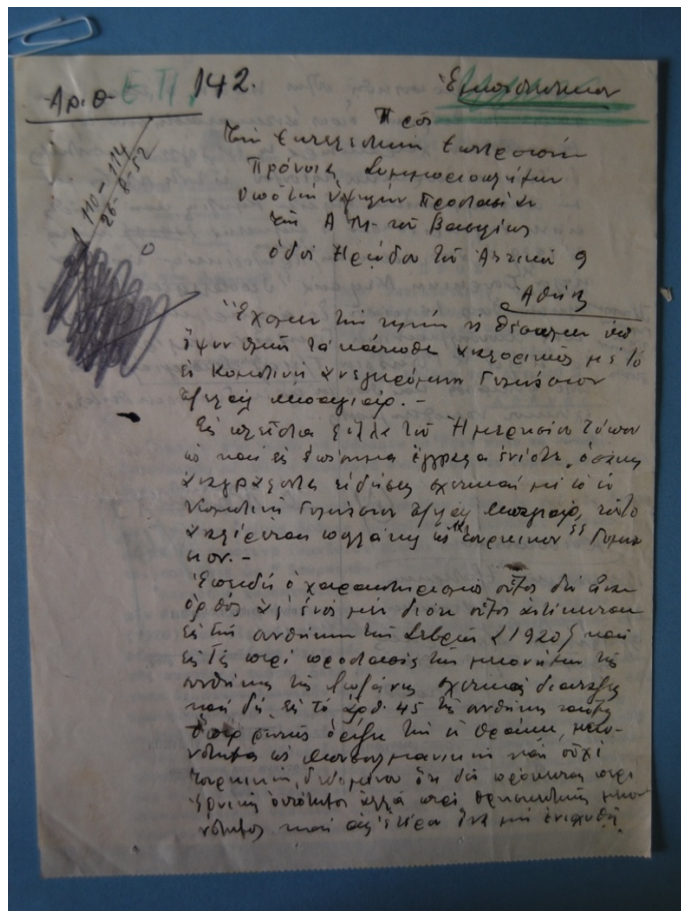 Αριθ. Ε.Π. 142.
110 – 114
26-8-52
Πρὸς
Τὴν Ἐκτελεστικὴν Ἐπιτροπὴν
Πρόνοιας Συμμοριοπλήκτων
Ὑπὸ τὴν Ὑψηλὴν Προστασίαν
τῆς Α.Μ. τοῦ Βασιλέως
ὁδὸς Ἡρώδου τοῦ Ἀττικοῦ 9
Ἀθήνας
Ἔχομεν τὴν τιμὴν νὰ θέσωμεν ὑπ'
ὄψιν ὑμῶν τὰ κάτωθι ἀναφορικῶς μὲ τὸ
ἐν Κομοτινῇ ἀνεγειρόμενον Γυμνάσιον
Τζελὰλ Μπαγιάρ. –
Εἰς πλεῖστα φύλλα τοῦ Ἡμερησίου τύπου
ὡς καὶ εἰς ἐπίσημα ἔγγραφα ἐνίοτε, ὁσάκις
ἀναγράφονται εἰδήσεις σχετικαὶ μὲ τὸ ἐν
Κομοτινῇ Γυμνάσιον Τζελὰλ Μπαγιάρ, τοῦτο
ἀναφέρεται πολλάκις ὡς "τουρκικὸν" Γυμνά-
σιον. –
Ἐπειδὴ ὁ χαρακτηρισμὸς οὗτος δὲν εἶναι
ὀρθὸς ἀφ' ἑνὸς μὲν διότι οὗτος ἀντίκειται
εἰς τὴν συνθήκην τῶν Σεβρῶν (1920) καὶ
εἰς τὰς περὶ προστασίας τῶν μειονοτήτων τῆς
συνθήκης τῆς Λωζάνης σχετικὰς διατάξεις
καὶ δὴ εἰς τὸ ἄρθ. 45 τῆς συνθήκης ταύτης
ὅπερ ῥητῶς ὁρίζει τὴν ἐν Θράκῃ μειο-
νότητα ὡς Μουσουλμανικὴν καὶ οὐχὶ
τουρκικήν, δεδομένου ὅτι δὲν πρόκειται περὶ
ἐθνικῆς ὀντότητος ἀλλὰ περὶ θρησκευτικῆς μειο-
νότητος καὶ ἀφ' ἑτέρου ἵνα μὴ ἐνισχυθῇ